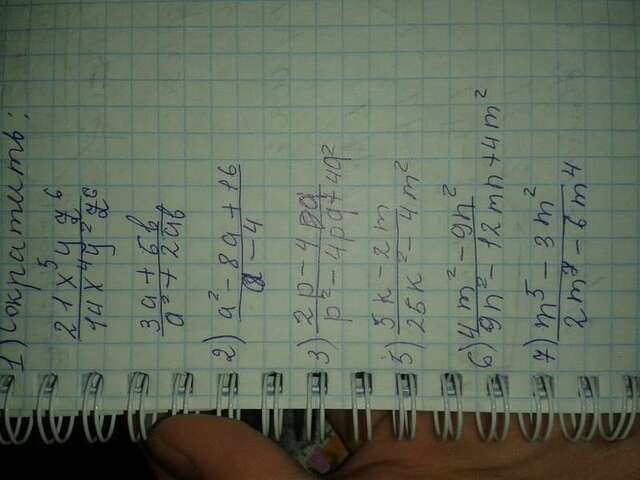 1) Сократить:
21x⁵yz⁶ / 14x⁴y²z⁶
3a+6b / a²+2ab
2) a²-8a+16 / a-4
3) 2p-4pq / p²-4pq+4q²
5) 5k-2m / 25k²-4m²
6) 4m²-9n² / 9n²-12mn+4m²
7) m⁵-3m² / -6m⁴